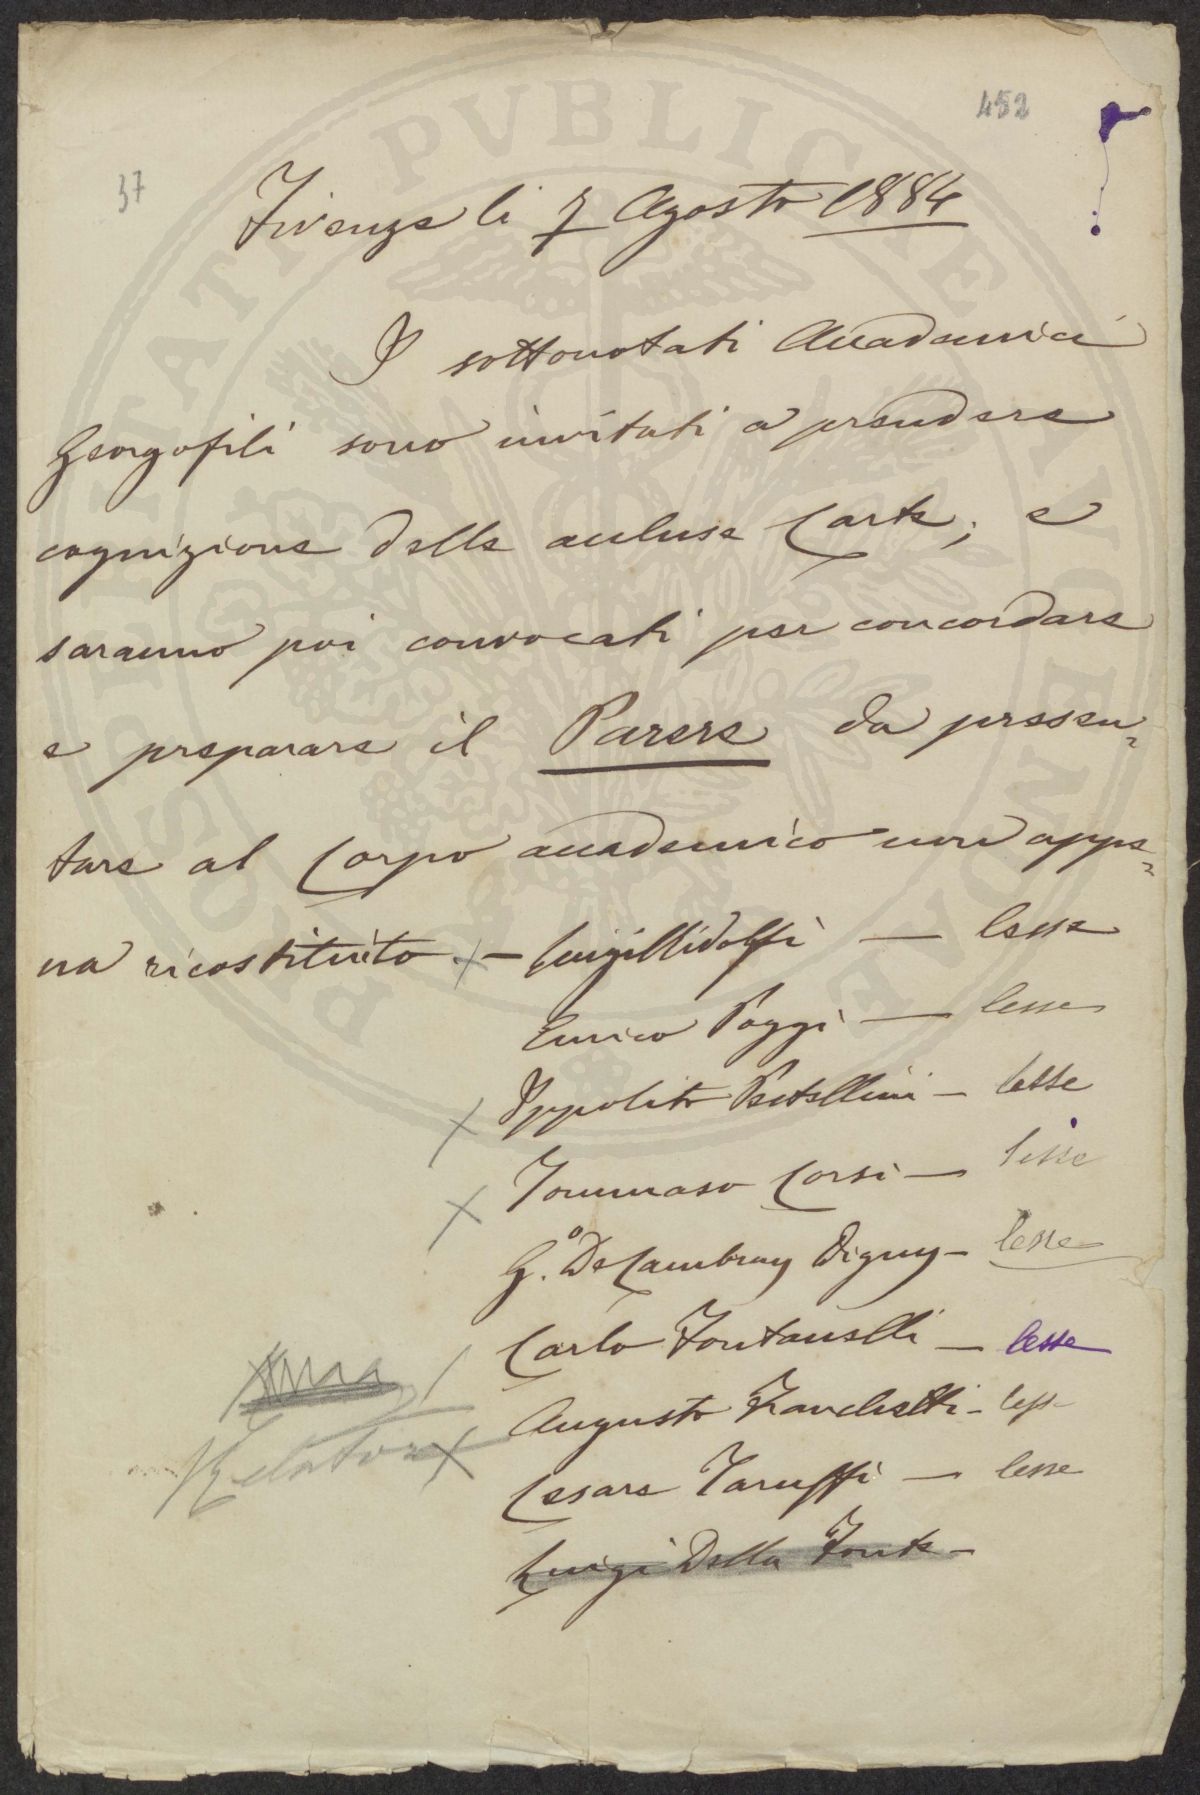 452
37
Firenze li 7 Agosto 1884
I sottonotati Accademici
Georgofili sono invitati a prendere
cognizione delle accluse Carte; e
saranno poi convocati per concordare
e preparare il Parere da presen=
tare al Corpo accademico non appe=
na ricostituito. — Luigi Ridolfi — lesse
Enrico Poggi — lesse
X Ippolito Pestellini — lesse
X Tommaso Corsi — lesse
G.o De Cambray Digny — lesse
Carlo Fontanelli — lesse
Augusto Franchetti — lesse
Relatore X Cesare Taruffi — lesse
Luigi Della Fonte —
PVBLICAE
PROSPERITATI
AVGENDAE